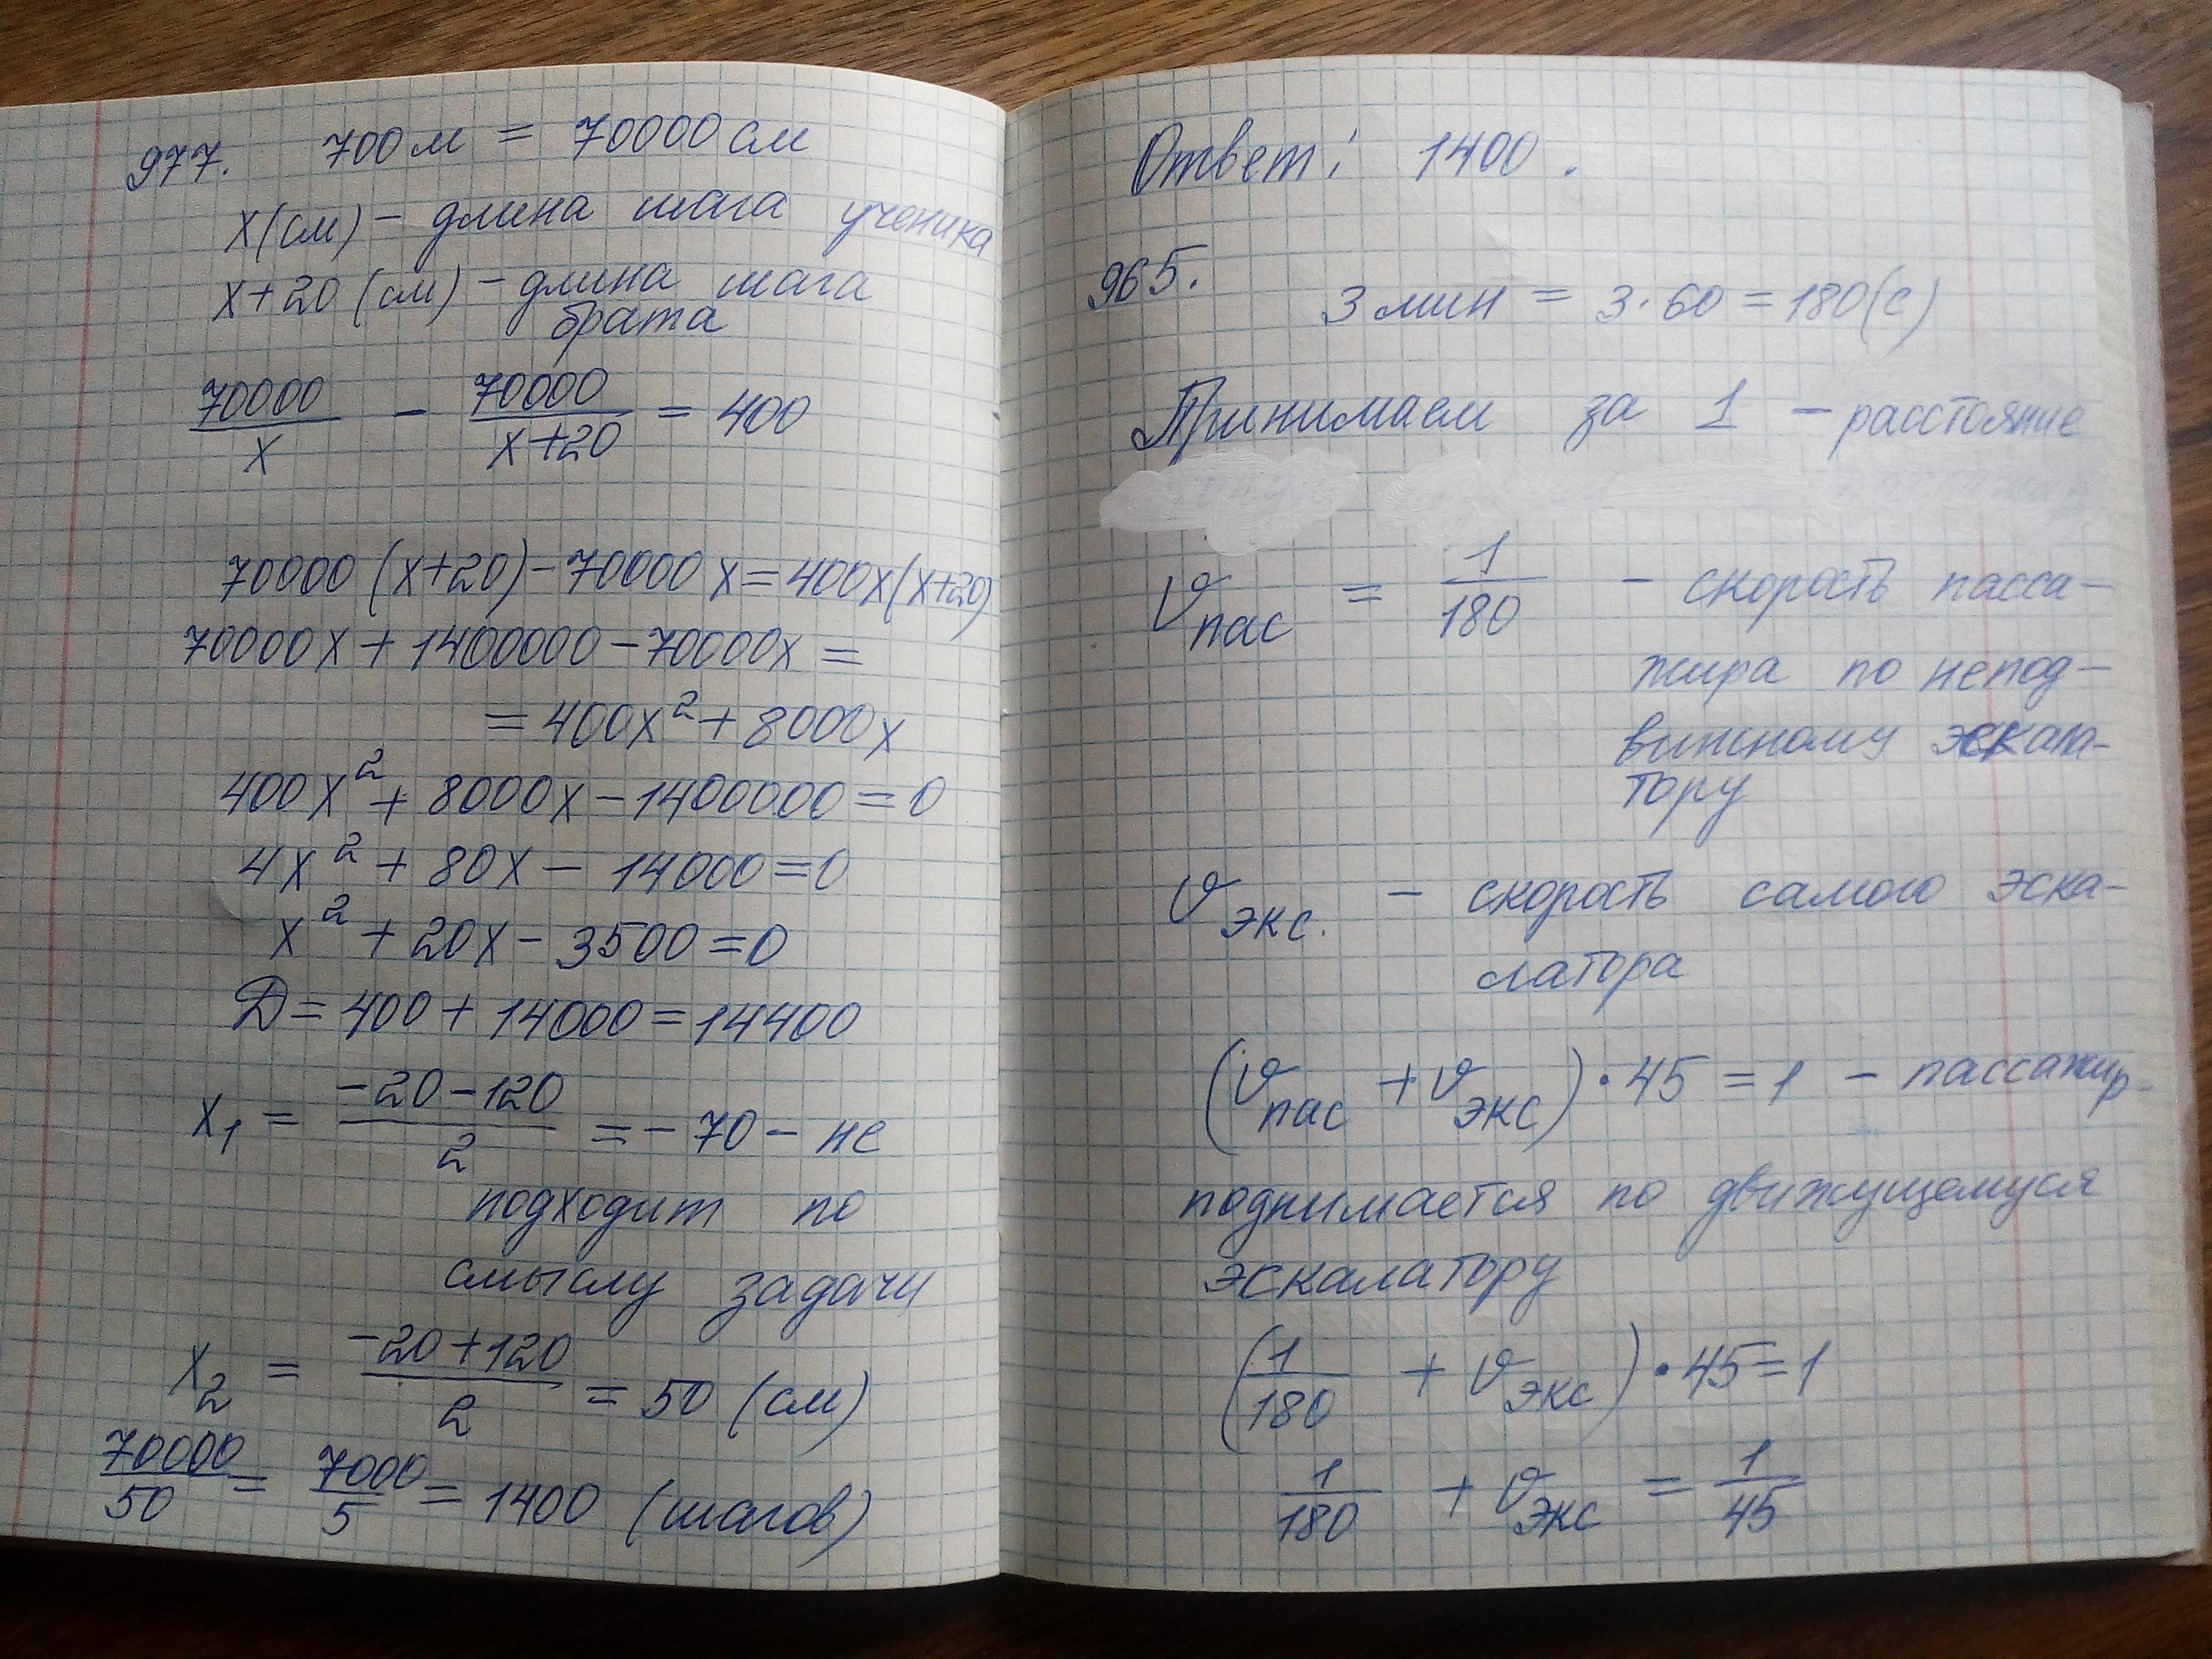 977. 700 м = 70000 см
x (см) – длина шага ученика
x+20 (см) – длина шага
брата
70000/x – 70000/(x+20) = 400
70000 (x+20) – 70000 x = 400x(x+20)
70000x + 1400000 – 70000x =
= 400x² + 8000x
400x² + 8000x – 1400000 = 0
4x² + 80x – 14000 = 0
x² + 20x – 3500 = 0
D = 400 + 14000 = 14400
x₁ = (–20–120)/2 = –70 – не
подходит по
смыслу задачи
x₂ = (–20+120)/2 = 50 (см)
70000/50 = 7000/5 = 1400 (шагов)
Ответ: 1400.
965. 3 мин = 3·60 = 180(с)
Принимаем за 1 – расстояние
v пас = 1/180 – скорость пасса–
жира по непод–
вижному эскала–
тору
v экс. – скорость самого эска–
латора
(v пас + v экс)·45 = 1 – пассажир
поднимается по движущемуся
эскалатору
(1/180 + v экс)·45 = 1
1/180 + v экс = 1/45